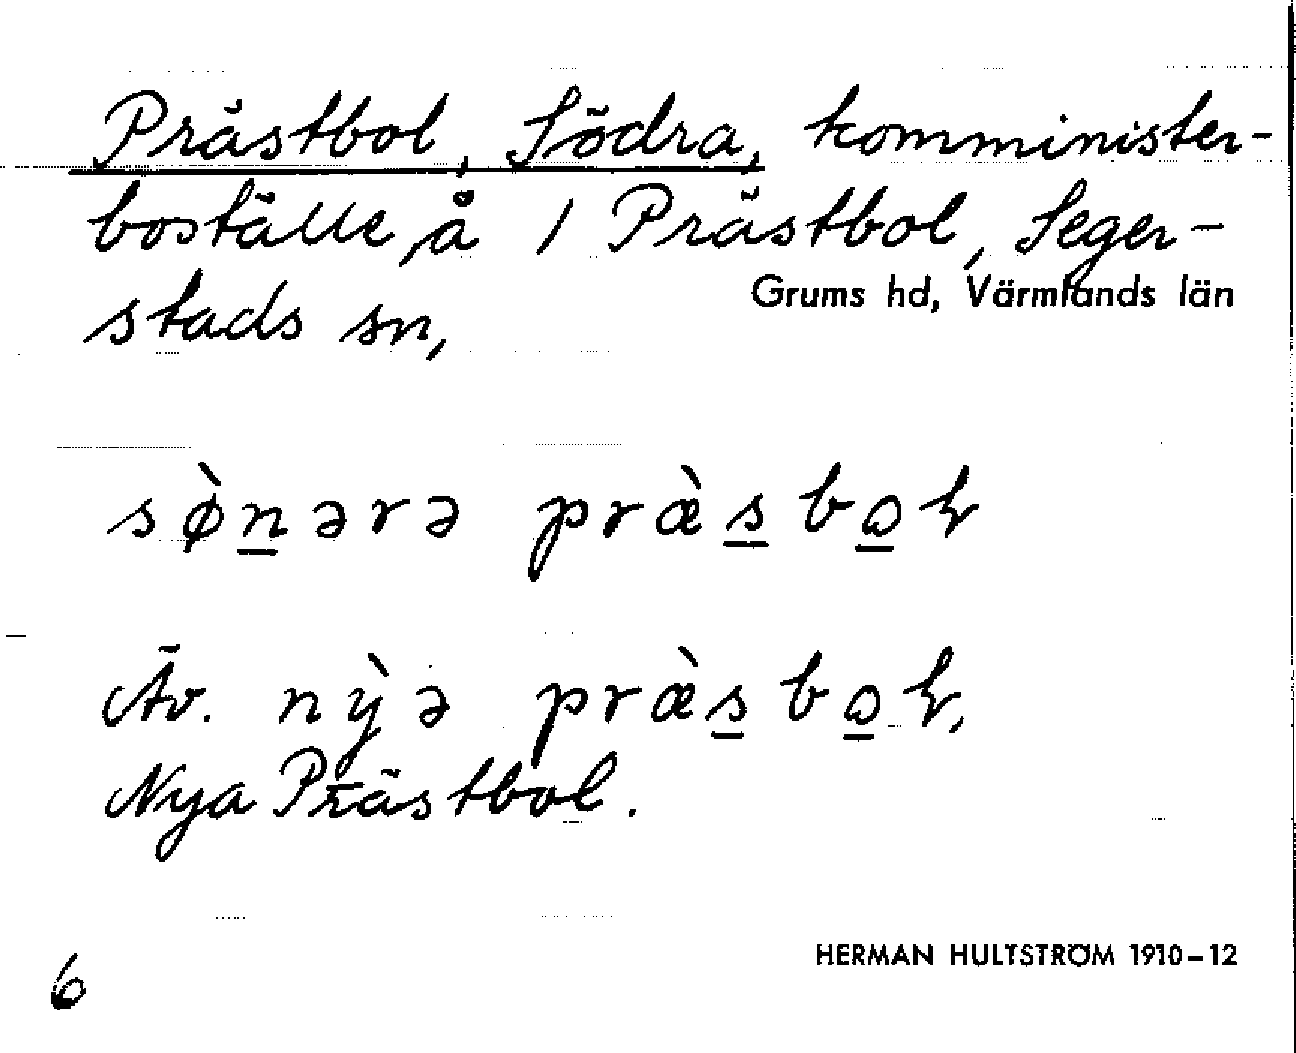 Prästbol, Södra, komminister-
boställe, å 1 Prästbol, Seger-
stads sn,
Grums hd, Värmlands län
sø̀n̲ərə præ̀s̲bo̲ɽ
Äv. nỳə præ̀s̲bo̲ɽ,
Nya Prästbol.
HERMAN HULTSTRÖM 1910–12
6